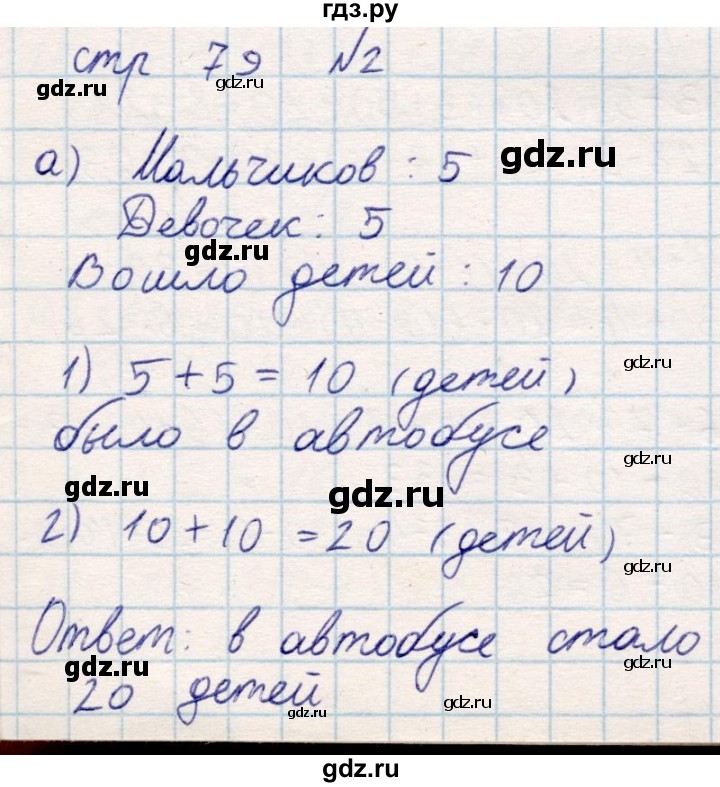 гдз.ру
стр 79 №2
gdz.ru
gdz.ru
а) Мальчиков : 5
gdz.ru
Девочек : 5
gdz.ru
Вошло детей : 10
1) 5 + 5 = 10 (детей)
gdz.ru
было в автобусе
gdz.ru
gdz.ru
gdz.ru
2) 10 + 10 = 20 (детей)
gdz.ru
Ответ: в автобусе стало
gdz.ru
gdz.ru
20 детей
gdz.ru
gdz.ru
gdz.ru